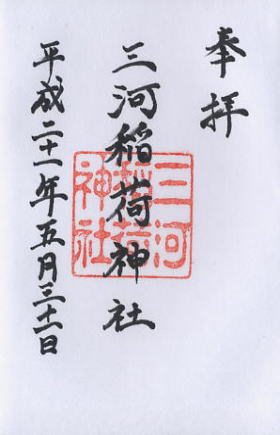 奉拝
三河稲荷神社
平成二十一年五月三十一日
三河
稲荷
神社